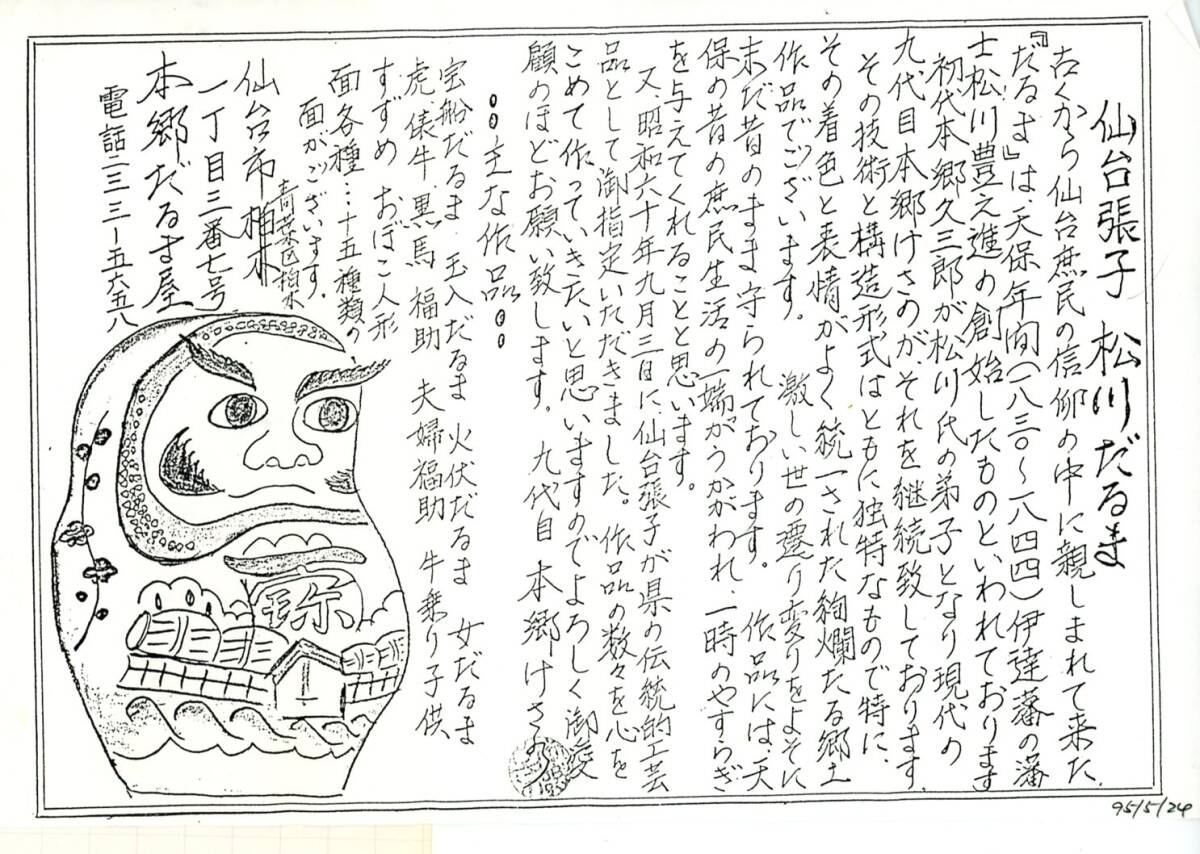 仙台張子 松川だるま
古くから仙台庶民の信仰の中に親しまれて来た
『だるま』は、天保年間(一八三〇〜一八四四)伊達藩の藩
士松川豊之進の創始したものといわれております
初代本郷久三郎が松川氏の弟子となり現代の
九代目本郷けさのが、それを継続致しております。
その技術と構造形式はともに独特なもので特に、
その着色と表情がよく統一された絢爛たる郷土
作品でございます。 激しい世の遷り変りをよそに
末だ昔のまま守られております。 作品には、天
保の昔の庶民生活の一端がうかがわれ、一時のやすらぎ
を与えてくれることと思います。
又、昭和六十年九月三日に、仙台張子が県の伝統的工芸
品として御指定いただきました。作品の数々を心を
こめて作っていきたいと思いますのでよろしく御愛
顧のほどお願い致します。 九代目 本郷けさの
主な作品
宝船だるま 玉入だるま 火伏だるま 女だるま
虎、俵牛、黒馬 福助 夫婦福助 牛乗り子供
すずめ おぼこ人形
面各種…十五種類の
面がございます。
仙台市 柏木
青葉区柏木
一丁目三番七号
本郷だるま屋
電話二三三-五六五八
弥
95/5/24